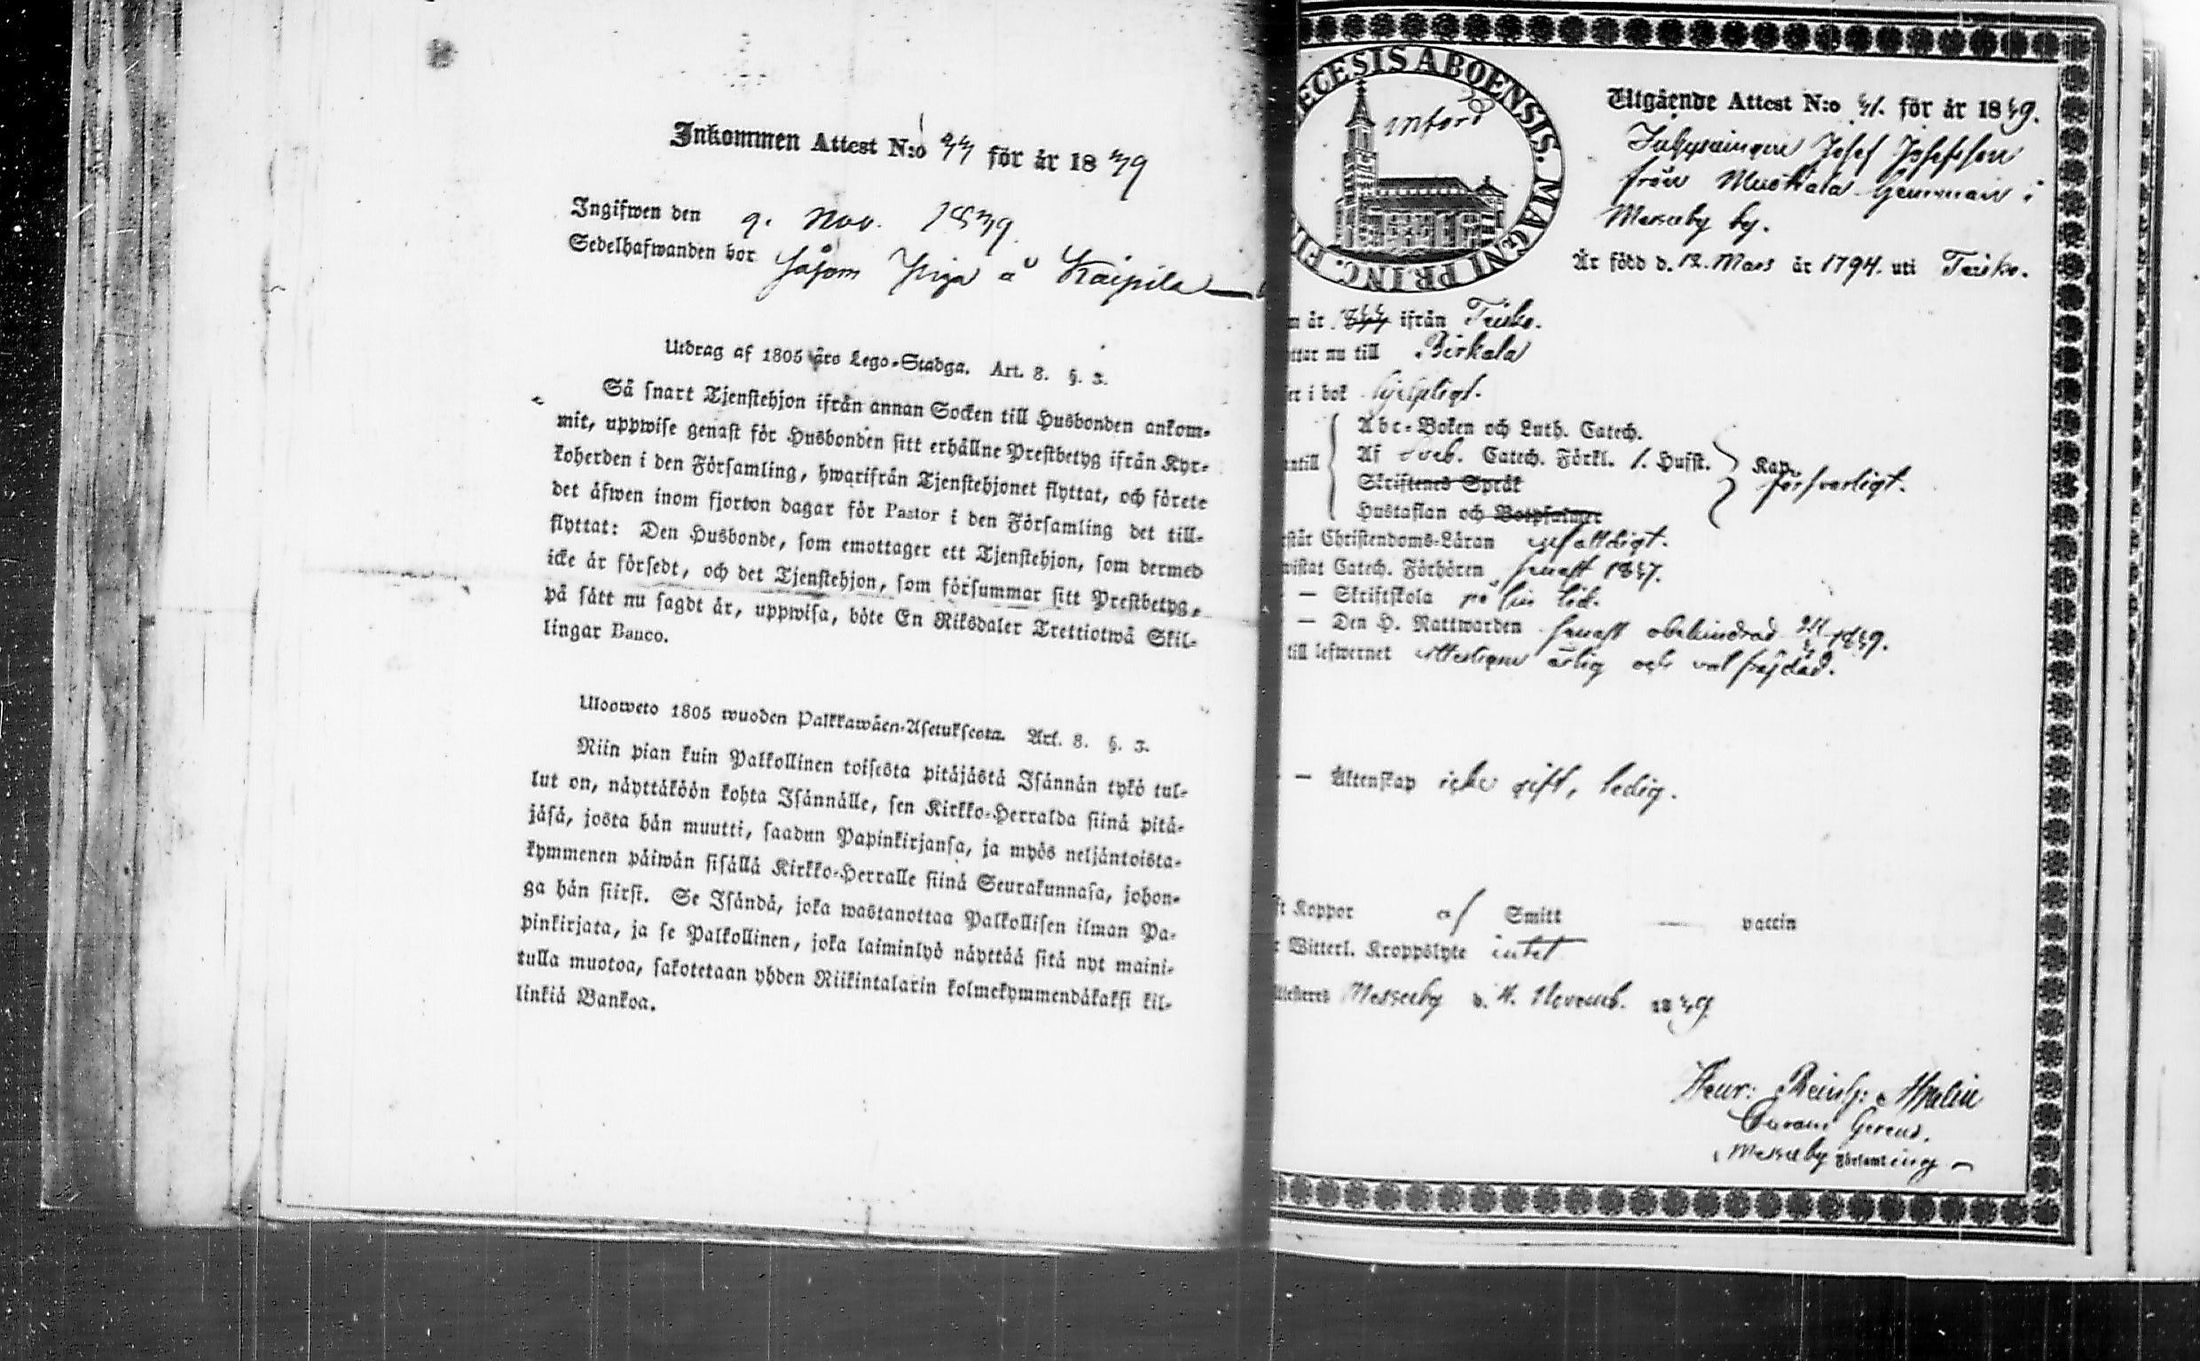 Inkommen Attest N:o för år 18
Ingifwen den 9. Nov.
Sedelhafwanden bor såsom Piga å Kaipila
Utdrag af 1805 års Lego-Stadga. Art. 8. §. 3.
Så snart Tjenstehjon ifrån annan Socken till Husbonden ankom-
mit, uppwise genast för Husbonden sitt erhållne Prestbetyg ifrån Kyr-
koherden i den Församling, hwarifrån Tjenstehjonet flyttat, och förete
det äfwen inom fjorton dagar för Pastor i den Församling det till-
flyttat: Den Husbonde, som emottager ett Tjenstehjon, som dermed
icke är försedt, och det Tjenstehjon, som försummar sitt Prestbetyg,
på sätt nu sagdt är, uppwisa, böte En Riksdaler Trettiotwå Skil-
lingar Banco.
Ulosweto 1805 wuoden Palkkawäen-Asetuksesta. Art. 8. §. 3.
Niin pian kuin Palkollinen toisesta pitäjästä Isännän tykö tul-
lut on, näyttäköön kohta Isännälle, sen Kirkko-Herralda siinä pitä-
jäsä, josta hän muutti, saadun Papinkirjansa, ja myös neljäntoista-
kymmenen päiwän sisällä Kirkko-Herralle siinä Seurakunnasa, johon-
ga hän siirsi. Se Isändä, joka wastanottaa Palkollisen ilman Pa-
pinkirjata, ja se Palkollinen, joka laiminlyö näyttää sitä nyt maini-
tulla muotoa, sakotetaan yhden Riikintalarin kolmekymmendäkaksi kil-
linkiä Bankoa.
ECESIS ABOENSIS. MAGNI PRINC. FI
införd
Utgående Attest N:o för år 18
Josef Josefsson
från Mustkala hemman i
Messuby by.
Är född d. 12. Mars år 1794. uti Teisko.
m år ifrån Teisko.
ttar nu till Birkala
er i bok hjelpligt.
Abc-Boken och Luth. Catech.
ntill Af Sveb. Catech. Förkl. 1. Hufst. Kap.
försvarligt.
Skriftenes Språk
Hustaflan och Botpsalmer
står Christendoms-Läran enfalldigt.
wistat Catech. Förhören senast
— Skriftskola på sin tid.
— Den H. Nattwarden senast obehindrad
till lefwernet ärlig och väl frejdad.
— Äktenskap icke gift, ledig.
t Koppor af Smitt — vaccin
r Witterl. Kroppslyte intet
ttesteres Messuby d. 4. Novemb. 18
Henr: Reinh: Malin
Messuby Församling